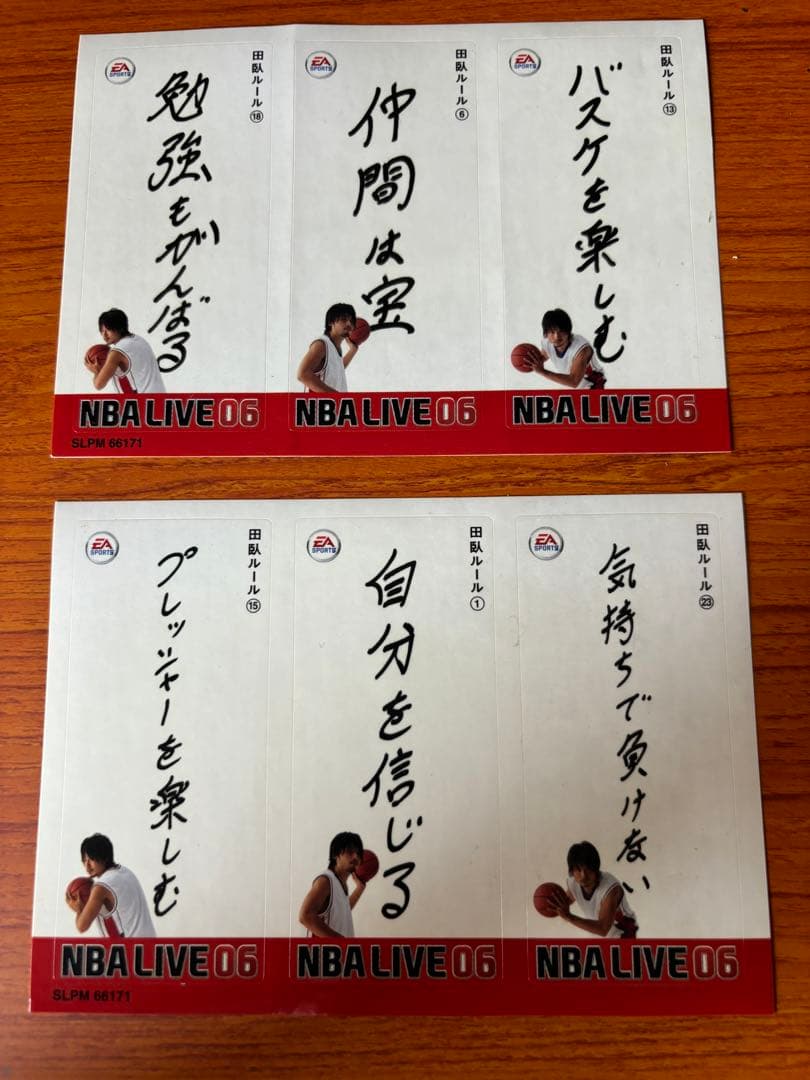 EA SPORTS
田臥ルール⑱
勉強もがんばる
NBA LIVE 06
EA SPORTS
田臥ルール⑥
仲間は宝
NBA LIVE 06
EA SPORTS
田臥ルール⑬
バスケを楽しむ
NBA LIVE 06
SLPM 66171
EA SPORTS
田臥ルール⑮
プレッシャーを楽しむ
NBA LIVE 06
EA SPORTS
田臥ルール①
自分を信じる
NBA LIVE 06
EA SPORTS
田臥ルール㉓
気持ちで負けない
NBA LIVE 06
SLPM 66171